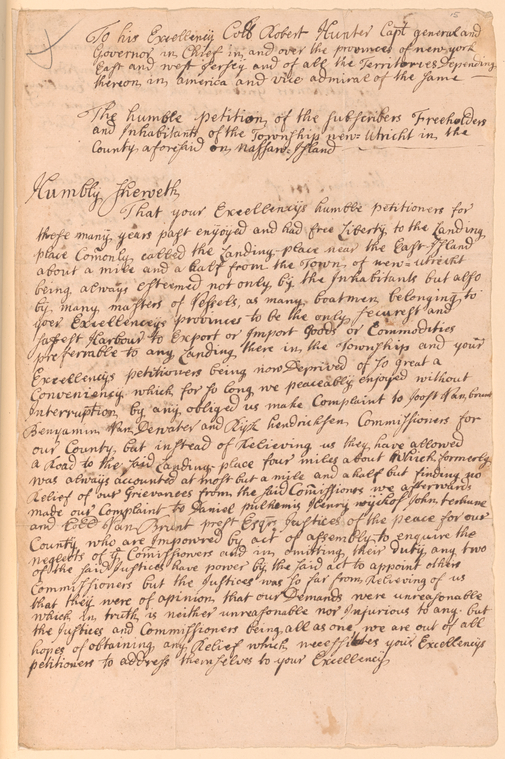 To his Excellency Coll Robert Hunter Capt general and
Governor in Chief in and over the provinces of new-york
East and west Jersey and of all the Territories Depending
thereon in america and vice admiral of the same
The humble petition of the subscribers Freeholders
and Inhabitants of the Township new-Utricht in the
County aforesaid on Nassaw-Island
Humbly Sheweth
That your Excellencys humble petitioners for
those many years past enjoyed and had free Liberty to the Landing
place Comonly called the Landing-place near the East-Island
about a mile and a half from the Town of new-utrecht
being always esteemed not only by the Inhabitants but also
by many masters of Vessels, as many boatmen belonging to
your Excellencys provinces to be the only securest and
safest Harbour to Export or Import Goods or Commodities
preferrable to any Landing there in the Township and your
Excellencys petitioners being now Deprived of so great a
Conveniency which for so long we peaceably enjoyed without
Interruption by any obliged us make Complaint to Joost Van brunt
Benyamin Van Dewater and Ryk Hendricksen Commissioners for
our County, but instead of Relieving us they have allowed
a Road to the said Landing place four miles about which formerly
was always accounted at most but a mile and a half but finding no
Relief of our Grievances from the said Comissiones we afterwards
made our Complaint to Daniel pulhemis Henry wyckof John terhune
and Van Brunt Esqrs Justices of the peace for our
County who are Impowred by act of assembly to enquire the
neglects of ye Comissioners and in omitting their Duty any two
of the said Justices have power by the said act to appoint others
Commissioners but the Justices was so far from Relieving of us
that they were of opinion that our Demands were unreasonable
which in truth is neither unreasonable nor Injurious to any but
the Justices and Commissioners being all as one we are out of all
hopes of obtaining any Relief which necessitates your Excellencys
petitioners to address themselves to your Excellency